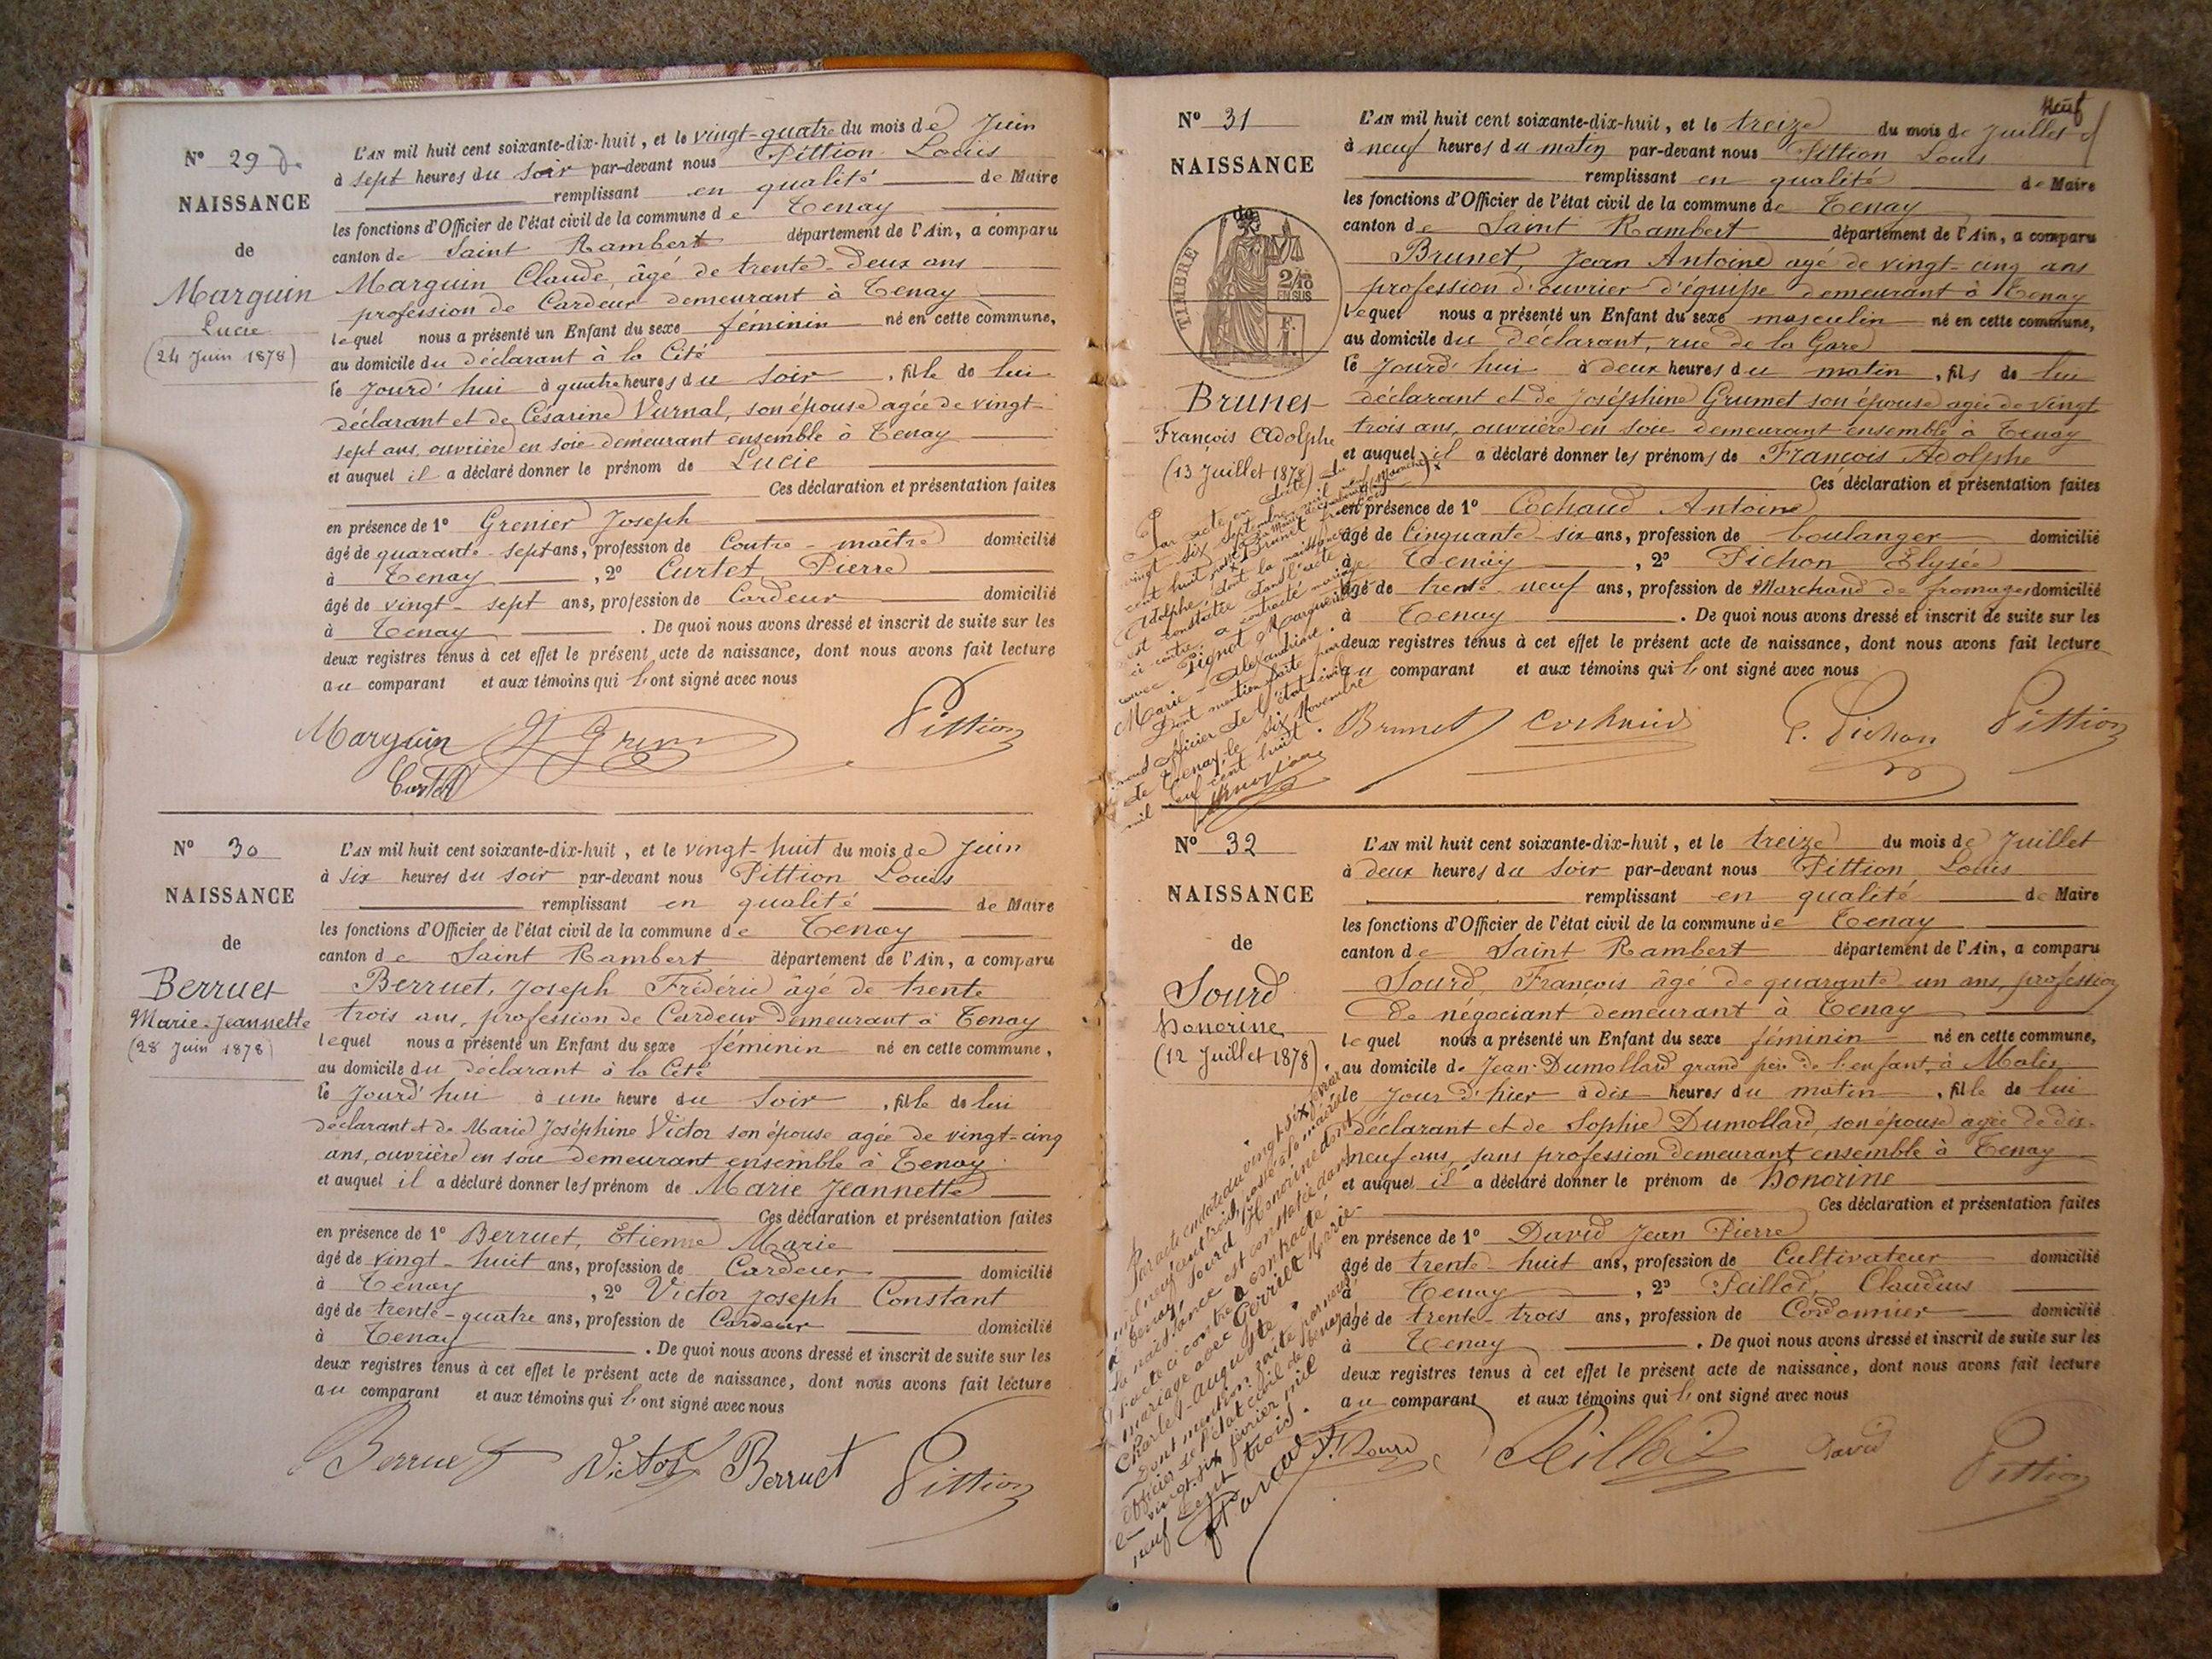 N° 29
NAISSANCE
de
Marguin
Lucie
(24 Juin 1878)
L'AN mil huit cent soixante-dix-huit, et le vingt-quatre du mois de Juin
à sept heures du soir par-devant nous Pittion Louis
remplissant en qualité de Maire
les fonctions d'Officier de l'état civil de la commune de Tenay
canton de Saint Rambert département de l'Ain, a comparu
Marguin Claude, âgé de trente-deux ans
profession de Cardeur demeurant à Tenay
lequel nous a présenté un Enfant du sexe féminin né en cette commune,
au domicile du déclarant à la Cité
le jourd'hui à quatre heures du soir, fille de lui
déclarant et de Césarine Varnal, son épouse agée de vingt-
sept ans, ouvrière en soie demeurant ensemble à Tenay
et auquel il a déclaré donner le prénom de Lucie
Ces déclaration et présentation faites
en présence de 1° Grenier Joseph
âgé de quarante-sept ans, profession de Contre-maître domicilié
à Tenay, 2° Curtet Pierre
âgé de vingt-sept ans, profession de Cardeur domicilié
à Tenay. De quoi nous avons dressé et inscrit de suite sur les
deux registres tenus à cet effet le présent acte de naissance, dont nous avons fait lecture
au comparant et aux témoins qui l'ont signé avec nous
Marguin Pittion
Curtet
N° 30
NAISSANCE
de
Berruet
Marie-Jeannette
(28 Juin 1878)
L'AN mil huit cent soixante-dix-huit, et le vingt-huit du mois de Juin
à six heures du soir par-devant nous Pittion Louis
remplissant en qualité de Maire
les fonctions d'Officier de l'état civil de la commune de Tenay
canton de Saint Rambert département de l'Ain, a comparu
Berruet, Joseph Frédéric âgé de trente
trois ans, profession de Cardeur demeurant à Tenay
lequel nous a présenté un Enfant du sexe féminin né en cette commune,
au domicile du déclarant à la Cité
le jourd'hui à une heure du soir, fille de lui
déclarant et de Marie Joséphine Victor son épouse agée de vingt-cinq
ans, ouvrière en soie demeurant ensemble à Tenay
et auquel il a déclaré donner les prénom de Marie Jeannette
Ces déclaration et présentation faites
en présence de 1° Berruet, Etienne Marie
âgé de vingt-huit ans, profession de Cardeur domicilié
à Tenay, 2° Victor Joseph Constant
âgé de trente-quatre ans, profession de Cardeur domicilié
à Tenay. De quoi nous avons dressé et inscrit de suite sur les
deux registres tenus à cet effet le présent acte de naissance, dont nous avons fait lecture
au comparant et aux témoins qui l'ont signé avec nous
Berruet Victor Berruet Pittion
N° 31
NAISSANCE
de
TIMBRE
2/10
EN SUS
Brunet
François Adolphe
(13 Juillet 1878)
Neuf
L'AN mil huit cent soixante-dix-huit, et le treize du mois de Juillet
à neuf heures du matin par-devant nous Pittion Louis
remplissant en qualité de Maire
les fonctions d'Officier de l'état civil de la commune de Tenay
canton de Saint Rambert département de l'Ain, a comparu
Brunet, Jean Antoine agé de vingt-cinq ans
profession d'ouvrier d'équipe demeurant à Tenay
lequel nous a présenté un Enfant du sexe masculin né en cette commune,
au domicile du déclarant, rue de la Gare
le jourd'hui à deux heures du matin, fils de lui
déclarant et de Joséphine Grumet son épouse agée de vingt
trois ans, ouvrière en soie demeurant ensemble à Tenay
et auquel il a déclaré donner les prénoms de François Adolphe
Ces déclaration et présentation faites
en présence de 1° Cochaud Antoine
âgé de Cinquante-six ans, profession de boulanger domicilié
à Tenay, 2° Pichon Elysée
âgé de trente-neuf ans, profession de Marchand de fromages domicilié
à Tenay. De quoi nous avons dressé et inscrit de suite sur les
deux registres tenus à cet effet le présent acte de naissance, dont nous avons fait lecture
au comparant et aux témoins qui l'ont signé avec nous
Brunet Cochaud E. Pichon Pittion
Par acte en date du
vingt-six septembre mil neuf
cent huit
Brunet François
Adolphe, dont la naissance
est constatée dans l'acte
ci contre, a contracté mariage
avec Pignot Marguerite
Marie-Alexandrine.
Dont mention faite par
nous Officier de l'état-civil
de Tenay, le six Novembre
mil neuf cent huit.
N° 32
NAISSANCE
de
Sourd
Honorine
(12 Juillet 1878)
L'AN mil huit cent soixante-dix-huit, et le treize du mois de Juillet
à deux heures du soir par-devant nous Pittion Louis
remplissant en qualité de Maire
les fonctions d'Officier de l'état civil de la commune de Tenay
canton de Saint Rambert département de l'Ain, a comparu
Sourd, François âgé de quarante-un ans, profession
de négociant demeurant à Tenay
lequel nous a présenté un Enfant du sexe féminin né en cette commune,
au domicile de Jean Dumollard grand père de l'enfant, à Malix
le jour d'hier à dix heures du matin, fille de lui
déclarant et de Sophie Dumollard, son épouse agée de dix-
neuf ans, sans profession demeurant ensemble à Tenay
et auquel il a déclaré donner le prénom de Honorine
Ces déclaration et présentation faites
en présence de 1° David Jean Pierre
âgé de trente-huit ans, profession de Cultivateur domicilié
à Tenay, 2° Peillod, Claudius
âgé de trente-trois ans, profession de Cordonnier domicilié
à Tenay. De quoi nous avons dressé et inscrit de suite sur les
deux registres tenus à cet effet le présent acte de naissance, dont nous avons fait lecture
au comparant et aux témoins qui l'ont signé avec nous
F. Sourd Peillod David Pittion
Par acte en date du vingt-six février
mil neuf cent trois, passé à la mairie
de Tenay, Sourd Honorine dont
la naissance est constatée dans
l'acte ci contre a contracté
mariage avec Perrier Marie-
Charles-Auguste.
Dont mention faite par nous
Officier de l'état civil de Tenay
le vingt-six février mil
neuf cent trois.